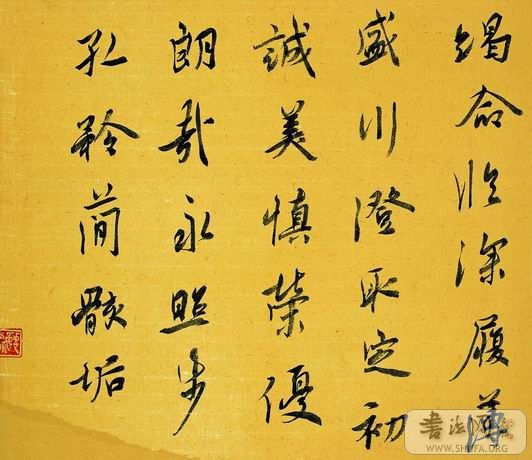 竭命臨深履薄
盛川澄取定初
誠美慎榮優
朗哉永照步
矜簡骸垢
书法
WWW.SHUFA.ORG